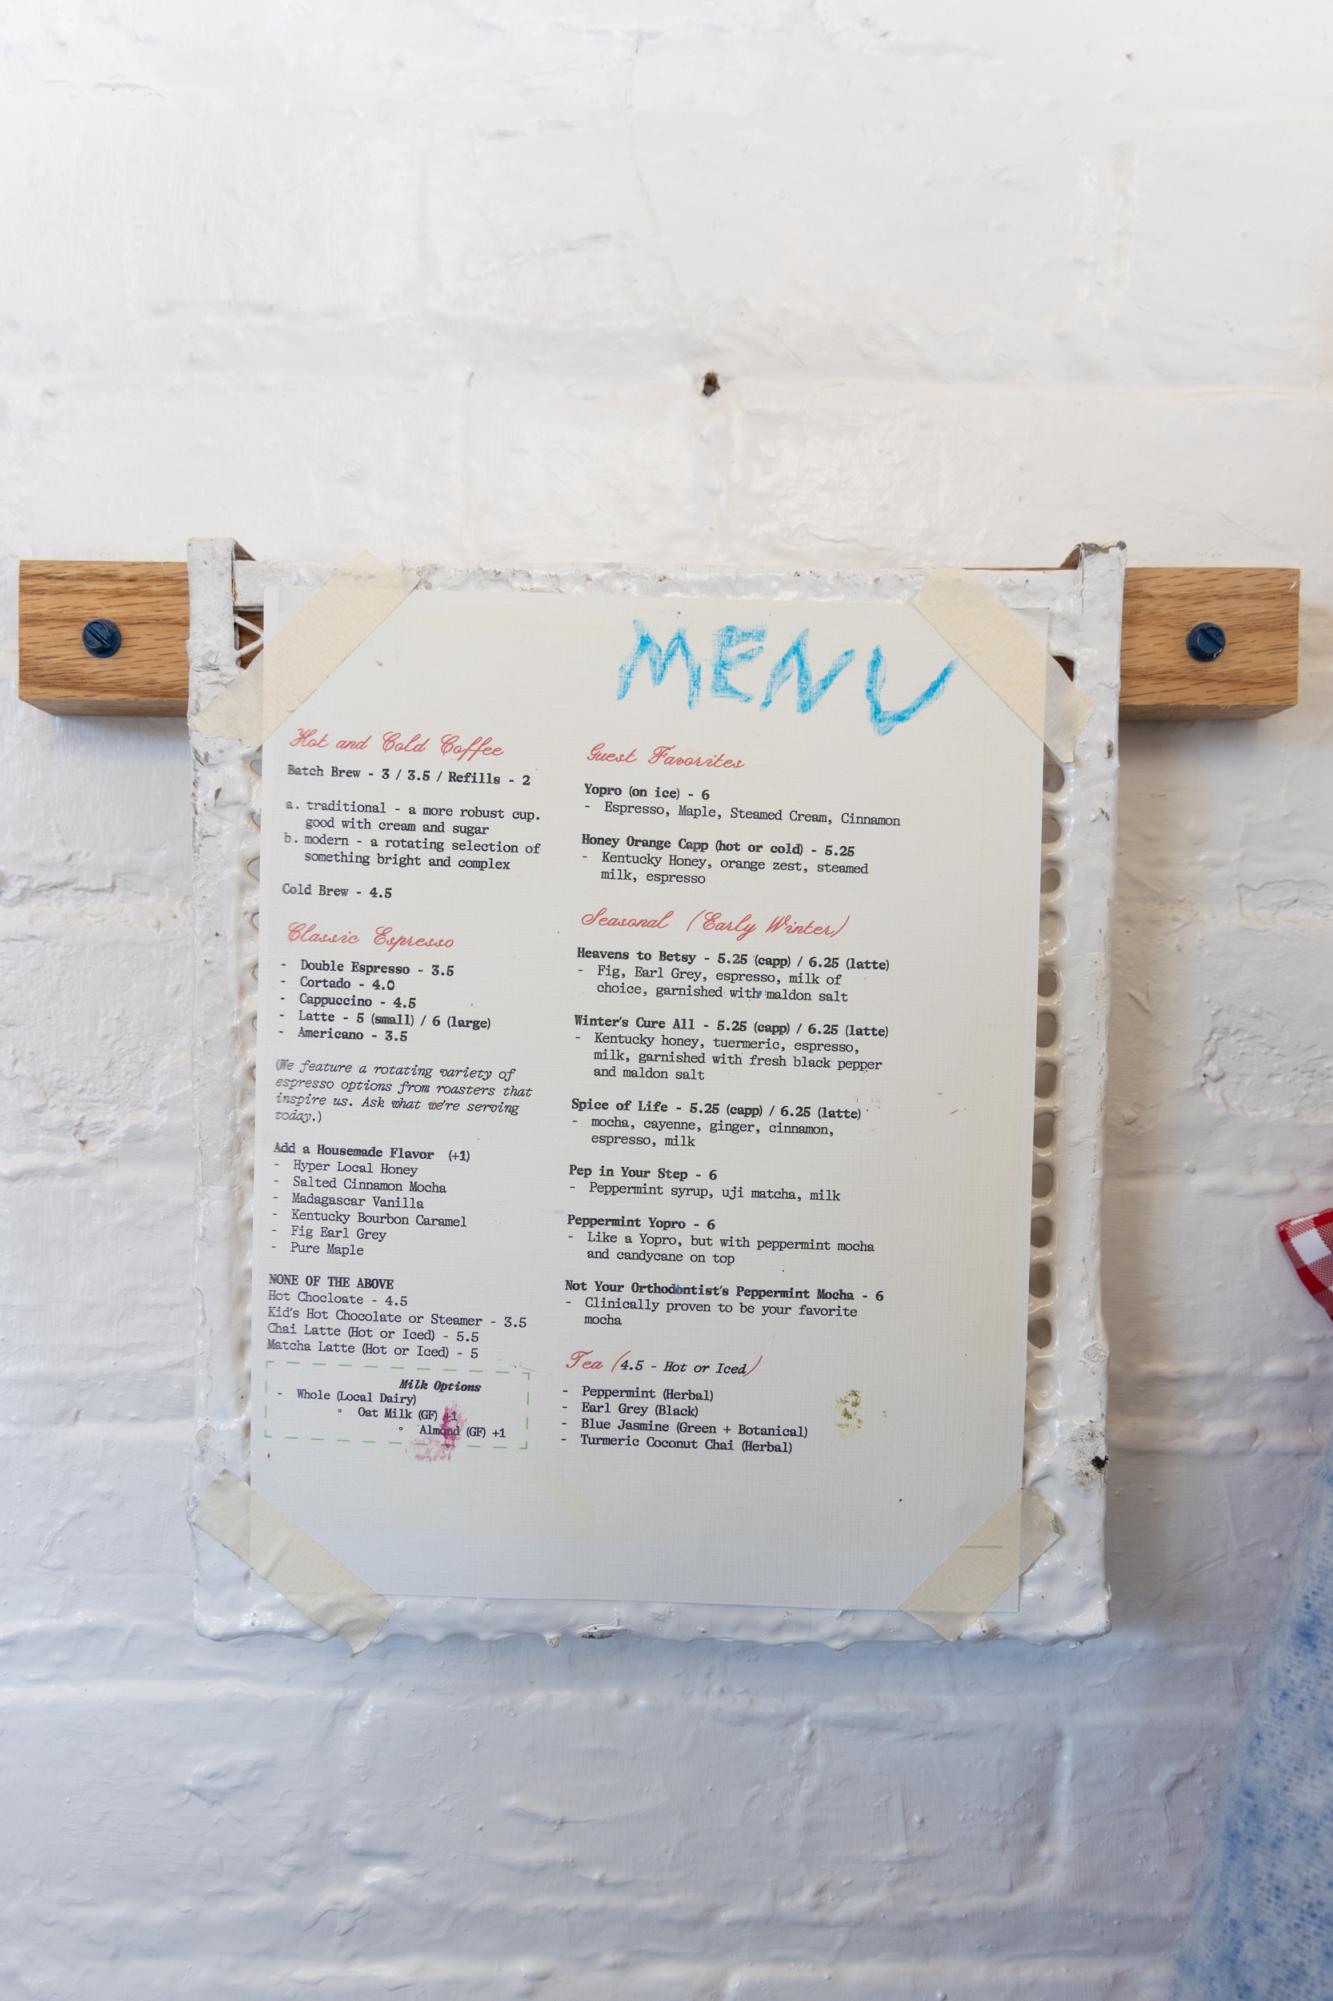 MENU
Hot and Cold Coffee
Batch Brew - 3 / 3.5 / Refills - 2
a. traditional - a more robust cup.
good with cream and sugar
b. modern - a rotating selection of
something bright and complex
Cold Brew - 4.5
Classic Espresso
- Double Espresso - 3.5
- Cortado - 4.0
- Cappuccino - 4.5
- Latte - 5 (small) / 6 (large)
- Americano - 3.5
(We feature a rotating variety of
espresso options from roasters that
inspire us. Ask what we're serving
today.)
Add a Housemade Flavor (+1)
- Hyper Local Honey
- Salted Cinnamon Mocha
- Madagascar Vanilla
- Kentucky Bourbon Caramel
- Fig Earl Grey
- Pure Maple
NONE OF THE ABOVE
Hot Chocloate - 4.5
Kid's Hot Chocolate or Steamer - 3.5
Chai Latte (Hot or Iced) - 5.5
Matcha Latte (Hot or Iced) - 5
Milk Options
- Whole (Local Dairy)
° Oat Milk (GF) +1
° Almond (GF) +1
Guest Favorites
Yopro (on ice) - 6
- Espresso, Maple, Steamed Cream, Cinnamon
Honey Orange Capp (hot or cold) - 5.25
- Kentucky Honey, orange zest, steamed
milk, espresso
Seasonal (Early Winter)
Heavens to Betsy - 5.25 (capp) / 6.25 (latte)
- Fig, Earl Grey, espresso, milk of
choice, garnished with maldon salt
Winter's Cure All - 5.25 (capp) / 6.25 (latte)
- Kentucky honey, tuermeric, espresso,
milk, garnished with fresh black pepper
and maldon salt
Spice of Life - 5.25 (capp) / 6.25 (latte)
- mocha, cayenne, ginger, cinnamon,
espresso, milk
Pep in Your Step - 6
- Peppermint syrup, uji matcha, milk
Peppermint Yopro - 6
- Like a Yopro, but with peppermint mocha
and candycane on top
Not Your Orthodontist's Peppermint Mocha - 6
- Clinically proven to be your favorite
mocha
Tea (4.5 - Hot or Iced)
- Peppermint (Herbal)
- Earl Grey (Black)
- Blue Jasmine (Green + Botanical)
- Turmeric Coconut Chai (Herbal)